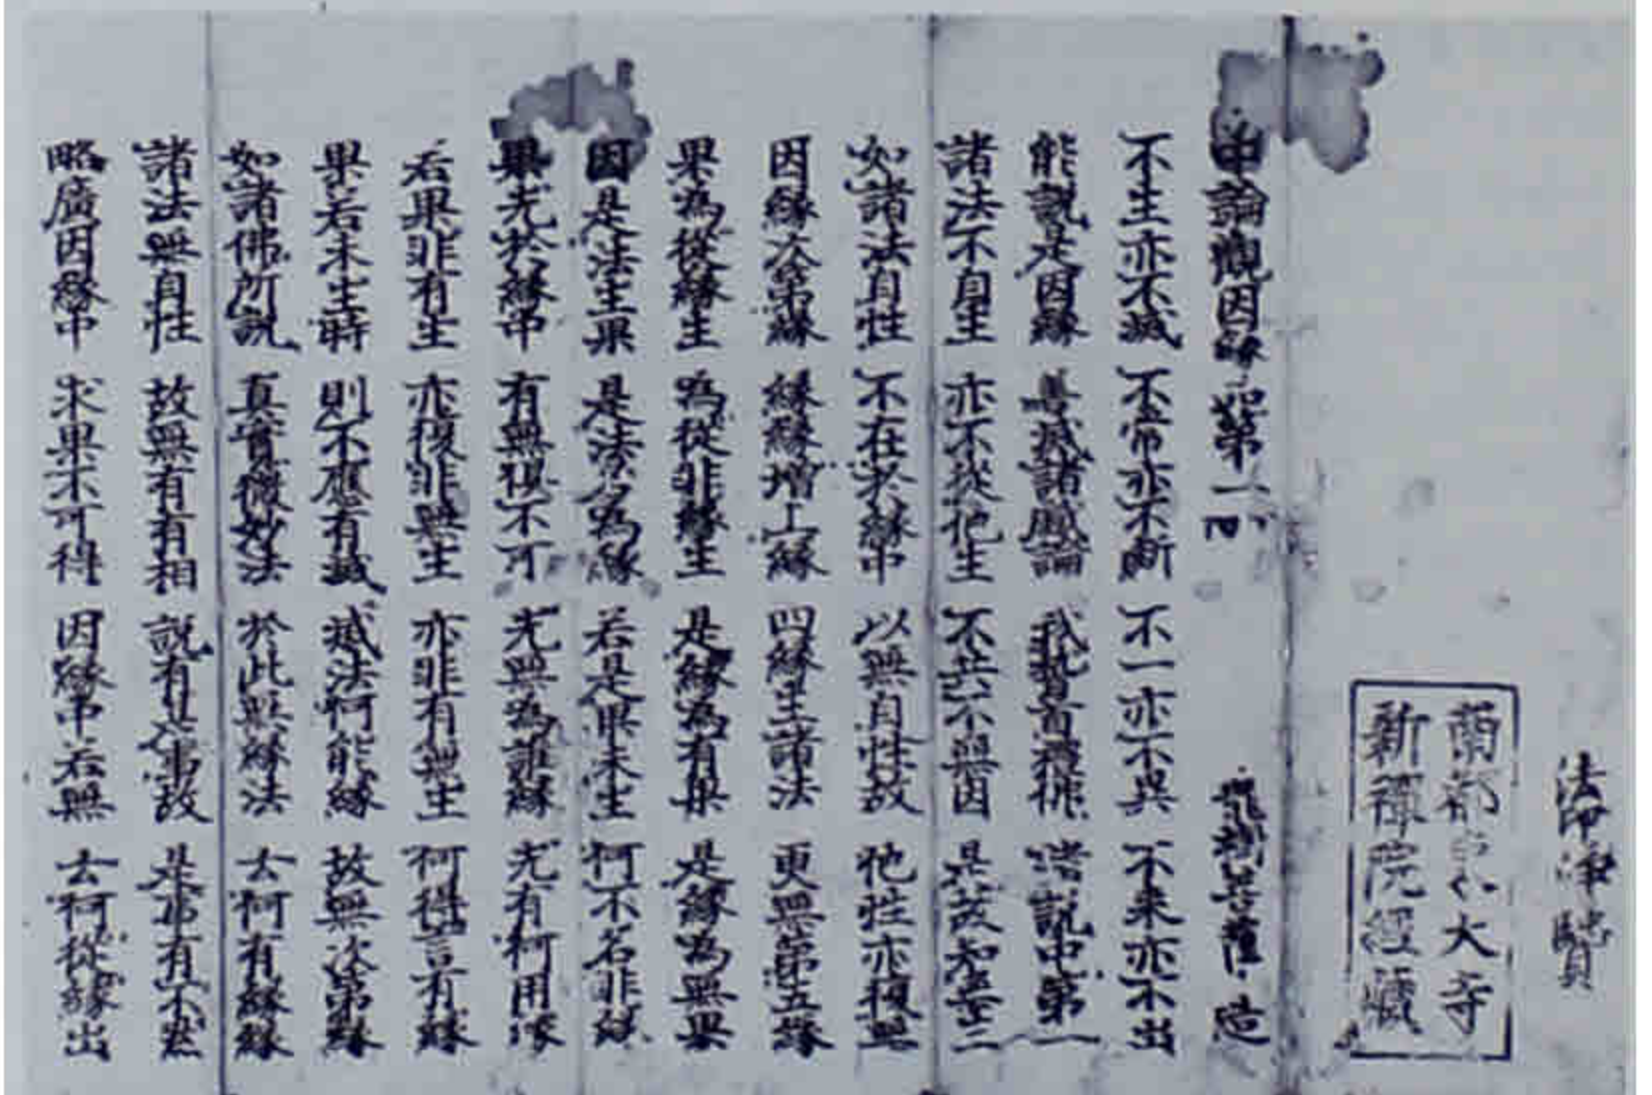 法浄
南都 大寺
新禅院經蔵
中論觀因縁品第一 菩薩造
不生亦不滅 不常亦不断 不一亦不異 不来亦不出
能説是因縁 善滅諸戯論 我稽首禮佛 諸説中第一
諸法不自生 亦不從他生 不共不無因 是故知無生
如諸法自性 不在於縁中 以無自性故 他性亦復無
因縁次第縁 縁縁増上縁 四縁生諸法 更無第五縁
果為從縁生 為從非縁生 是縁為有果 是縁為無果
因是法生果 是法名為縁 若是果未生 何不名非縁
果先於縁中 有無俱不可 先無為誰縁 先有何用縁
若果非有生 亦復非無生 亦非有無生 何得言有縁
果若未生時 則不應有滅 滅法何能縁 故無次第縁
如諸佛所説 真實微妙法 於此無縁法 云何有縁縁
諸法無自性 故無有有相 説有是事故 是事有不然
略廣因縁中 求果不可得 因縁中若無 云何從縁出